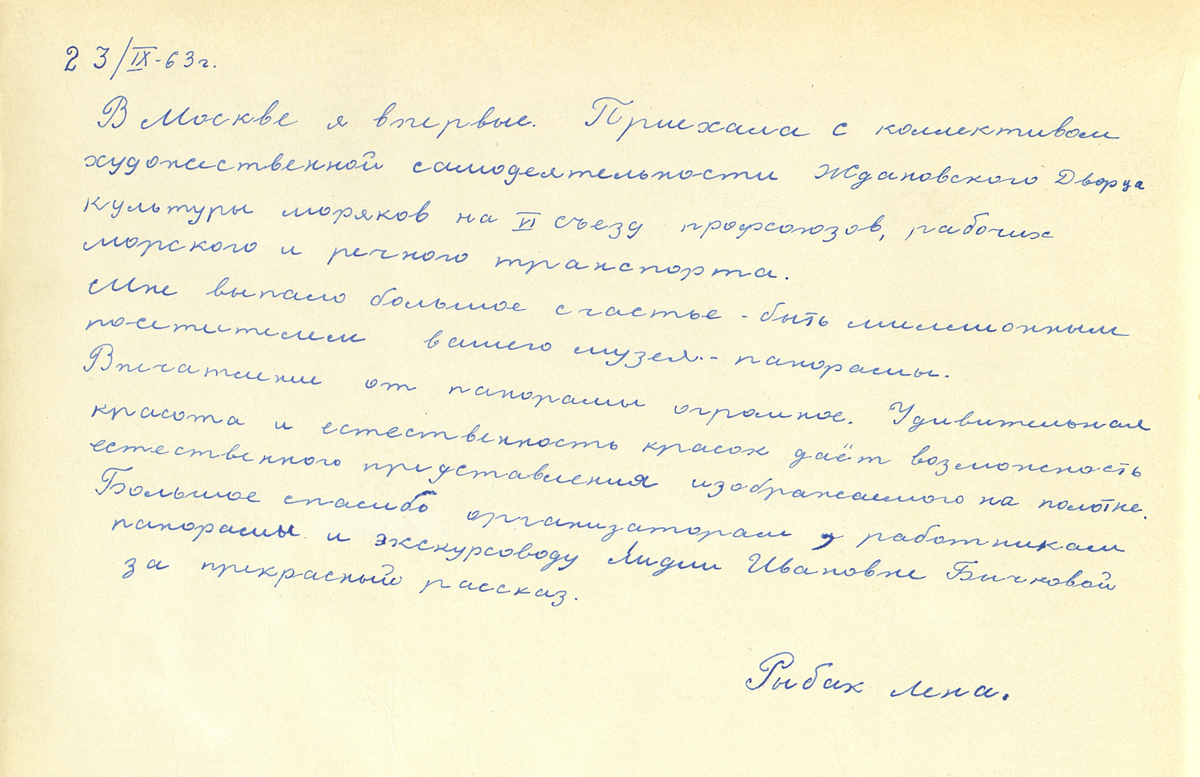 23/IX-63г.
В Москве я впервые. Приехала с коллективом
художественной самодеятельности Ждановского Дворца
культуры моряков на VI съезд профсоюзов, рабочих
морского и речного транспорта.
Мне выпало большое счастье - быть миллионным
посетителем вашего музея - панорамы.
Впечатление от панорамы огромное. Удивительная
красота и естественность красок даёт возможность
естественного представления изображаемого на полотне.
Большое спасибо организаторам, работникам
панорамы и экскурсоводу Лидии Ивановне Бычковой
за прекрасный рассказ.
Рыбак Лена.